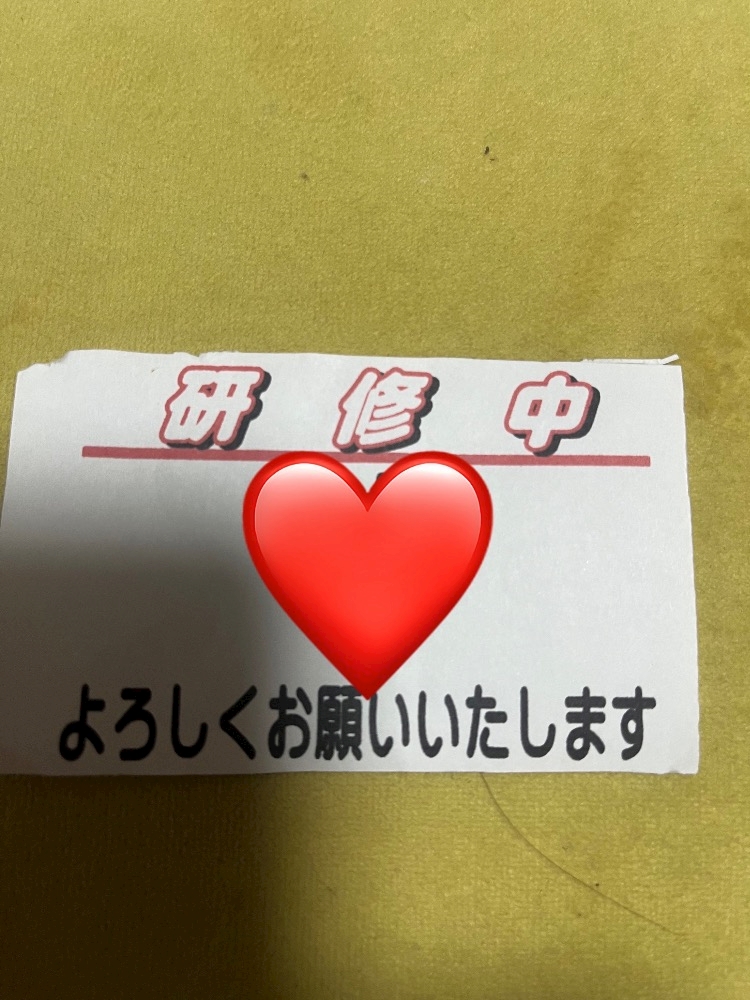 研修中
よろしくお願いいたします